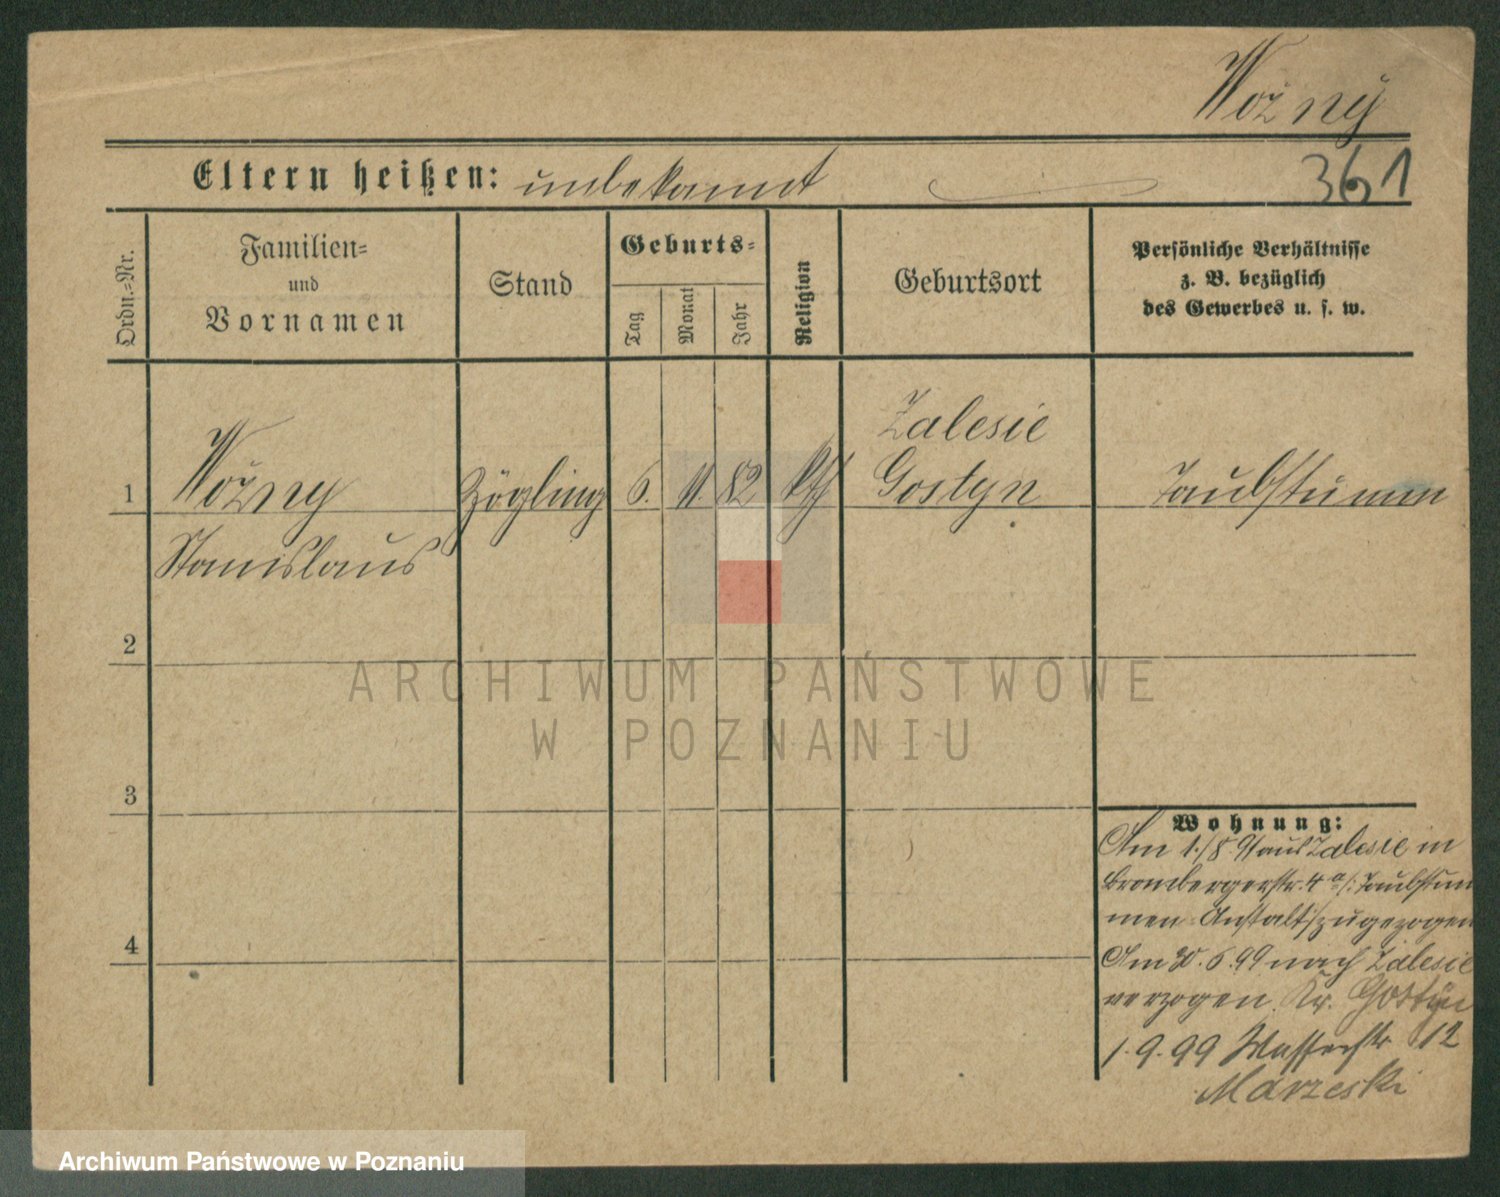 Wożny
Eltern heißen: unbekannt
361
Ordn.=Nr.
Familien=
und
Vornamen
Stand
Geburts=
Tag
Monat
Jahr
Religion
Geburtsort
Persönliche Verhältnisse
z. B. bezüglich
des Gewerbes u. s. w.
Zalesie
1 Wożny Zögling 6. 11. 82 kth Gostyn Taubstumm
Stanislaus
2
ARCHIWUM PAŃSTWOWE
W POZNANIU
3
4
Wohnung:
Am 1./8. 91 aus Zalesie in
Brombergerstr. 4a /: Taubstum
men Anstalt/ zugezogen
Am 30.6.99 nach Zalesie
verzogen. Kr. Gostyn
1.9.99 Wasserstr 12
Marzeski
Archiwum Państwowe w Poznaniu